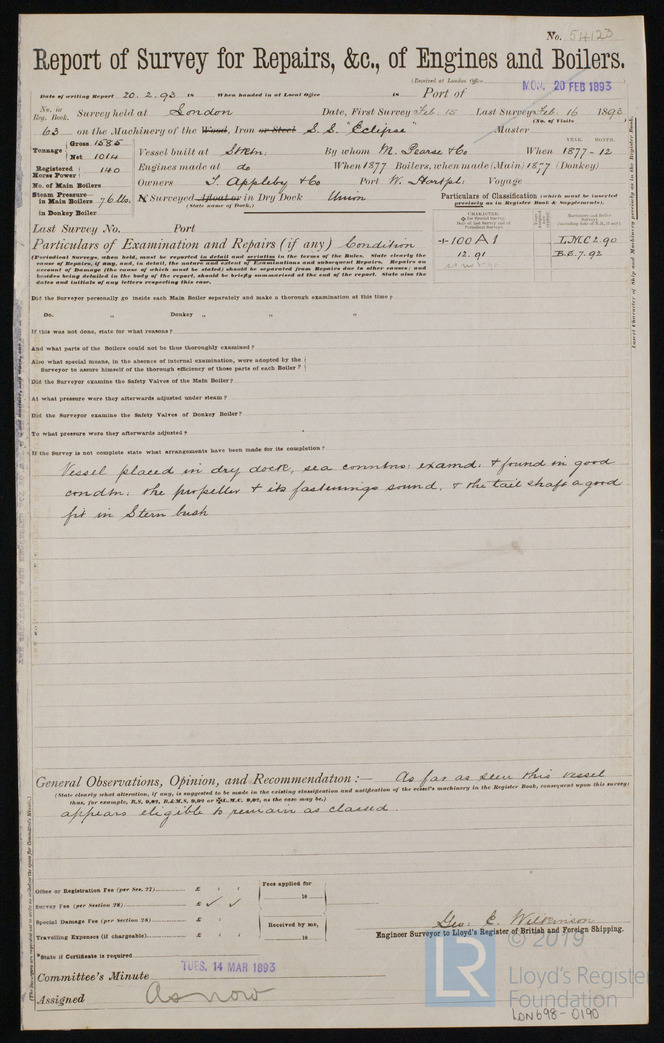 No. 54123
Report of Survey for Repairs, &c., of Engines and Boilers.
(Received at London Office MON. 20 FEB 1893
Date of writing Report 20. 2. 93 18 When handed in at Local Office 18 Port of
No. in Reg. Book. Survey held at London Date, First Survey Feb. 15 Last Survey Feb. 16 1893
(No. of Visits )
63 on the Machinery of the Wood, Iron or Steel S.S. "Eclipse" Master
Tonnage Gross 1585 Net 1014 Vessel built at Stktn. By whom M. Pearse & Co When YEAR. MONTH. 1877 - 12
Registered Horse Power 140 Engines made at do When 1877 Boilers, when made (Main) 1877 (Donkey)
No. of Main Boilers Owners T. Appleby & Co Port W. Hartpl: Voyage
Steam Pressure in Main Boilers 76 lbs. in Donkey Boiler
If Surveyed Afloat or in Dry Dock Union
(State name of Dock.)
Particulars of Classification (which must be inserted precisely as in Register Book & Supplements).
+100 A1 L.M.C 2.90
12.91 B.S. 7.92
Last Survey No. Port
Particulars of Examination and Repairs (if any) Condition
(Periodical Surveys, when held, must be reported in detail and seriatim in the terms of the Rules. State clearly the
cause of Repairs, if any, and, in detail, the nature and extent of Examinations and subsequent Repairs. Repairs on
account of Damage (the cause of which must be stated) should be separated from Repairs due to other causes; and
besides being detailed in the body of the report, should be briefly summarised at the end of the report. State also the
dates and initials of any letters respecting this case.
Did the Surveyor personally go inside each Main Boiler separately and make a thorough examination at this time?
Do. " Donkey " " "
If this was not done, state for what reasons?
And what parts of the Boilers could not be thus thoroughly examined?
Also what special means, in the absence of internal examination, were adopted by the
Surveyor to assure himself of the thorough efficiency of those parts of each Boiler?
Did the Surveyor examine the Safety Valves of the Main Boiler?
At what pressure were they afterwards adjusted under steam?
Did the Surveyor examine the Safety Valves of Donkey Boiler?
To what pressure were they afterwards adjusted?
If the Survey is not complete state what arrangements have been made for its completion?
Vessel placed in dry dock, sea conntns: examd: & found in good
condtn: the propeller & its fastenings sound, & the tail shaft a good
fit in Stern bush
General Observations, Opinion, and Recommendation:— As far as seen this vessel
(State clearly what alteration, if any, is suggested to be made in the existing classification and notification of the vessel's machinery in the Register Book, consequent upon this survey;
thus, for example, B.S. 9,92, B.&M.S. 9,92 or ✠L.M.C. 9,92, as the case may be.)
appears eligible to remain as classed.
Office or Registration Fee (per Sec. 27) £ : : Fees applied for
Survey Fee (per Section 28) £ 18
Special Damage Fee (per Section 28) £ : Received by me,
Travelling Expenses (if chargeable) £ : : 18
Geo: E. Wilkinson
Engineer Surveyor to Lloyd's Register of British and Foreign Shipping.
*State if Certificate is required
Committee's Minute TUES. 14 MAR 1893
Assigned As now
© 2019
LR
Lloyd's Register
Foundation
LON698-0190